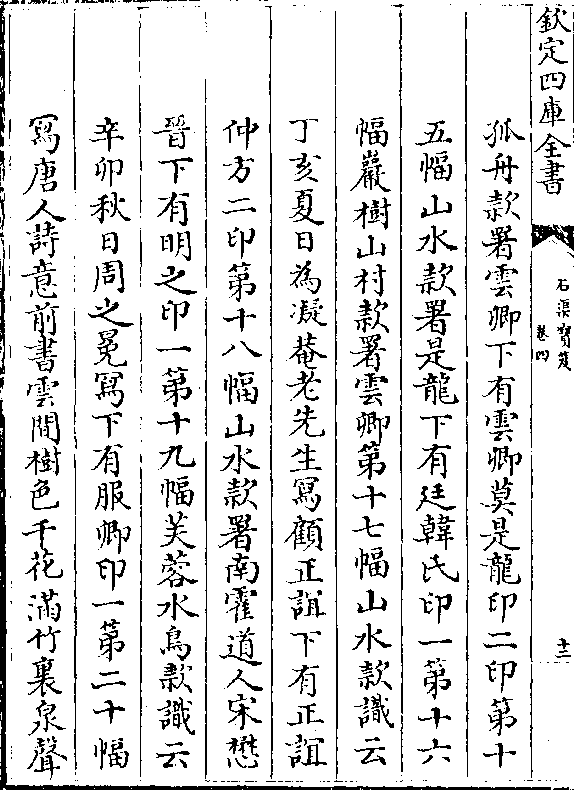 欽定四庫全書
石渠寶笈
卷四
十三
孤舟款署雲卿下有雲卿莫是龍印二印第十
五幅山水款署是龍下有廷韓氏印一第十六
幅巖樹山村款署雲卿第十七幅山水款識云
丁亥夏日為凝菴老先生寫顧正誼下有正誼
仲方二印第十八幅山水款署南霍道人宋懋
晉下有明之印一第十九幅芙蓉水鳥款識云
辛卯秋日周之冕寫下有服卿印一第二十幅
寫唐人詩意前書雲間樹色千花滿竹裏泉聲